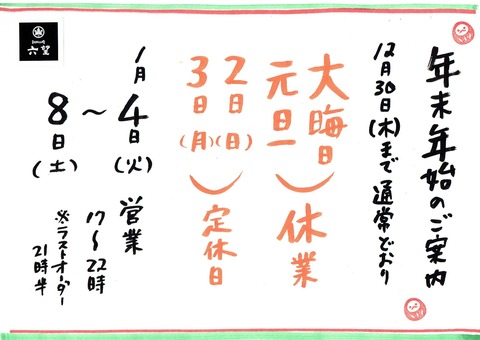 年末年始のご案内
12月30日(木)まで 通常どおり
大晦日
元旦
休業
2日(日)
3日(月)
定休日
1月4日(火)
〜
8日(土)
営業
17〜22時
※ラストオーダー
21時半
六望